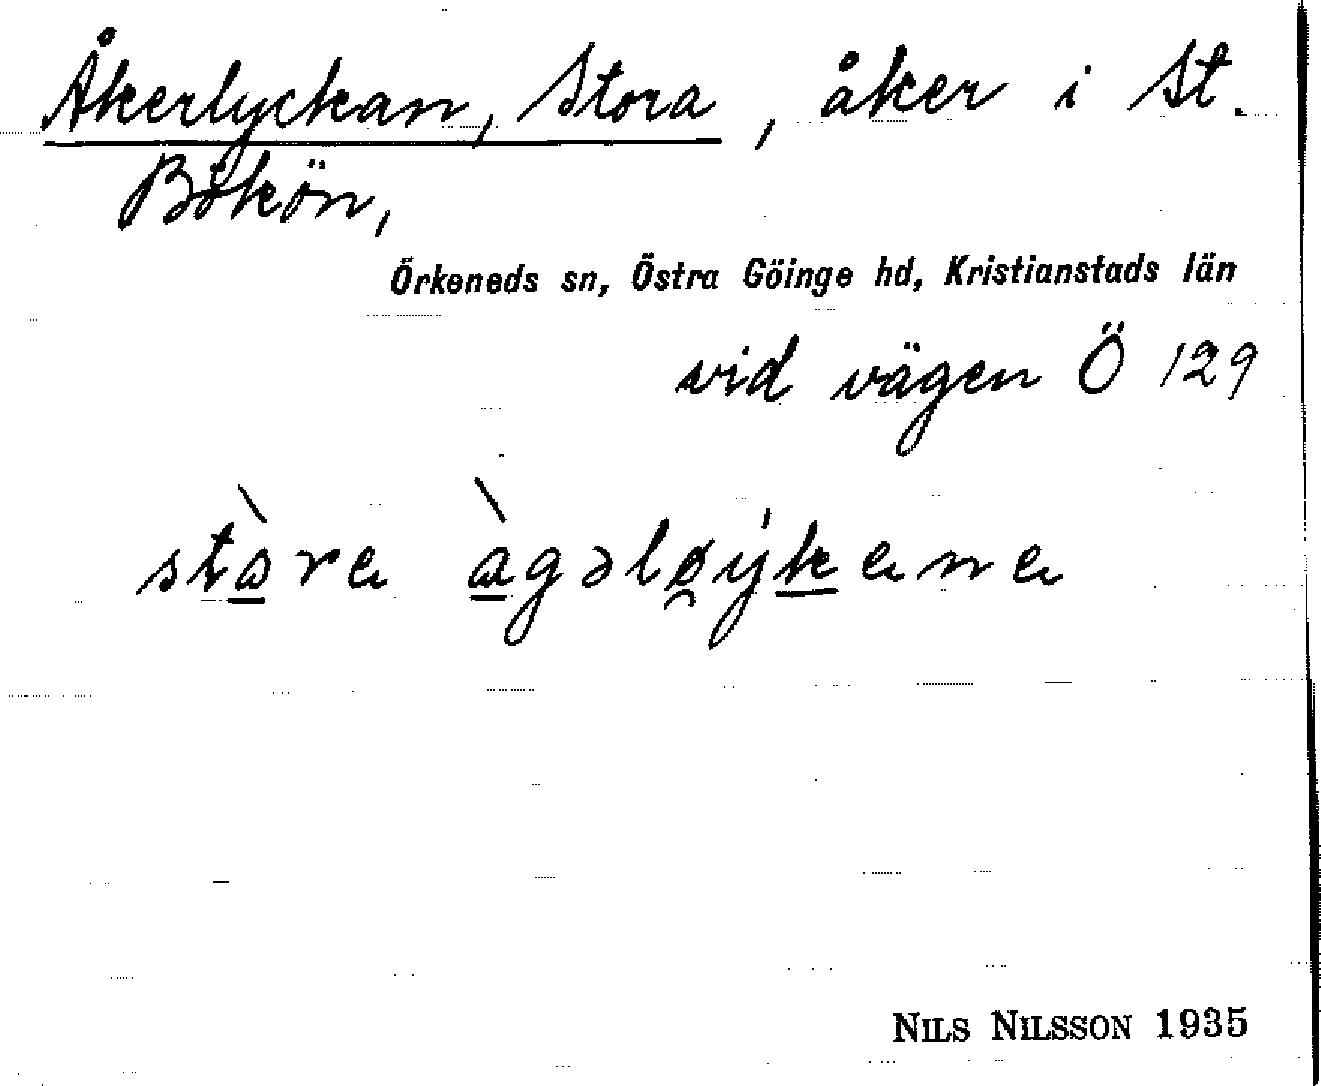 Åkerlyckan, Stora, åker i St.
Bökön,
Örkeneds sn, Östra Göinge hd, Kristianstads län
vid vägen Ö 129
stɑ̱̀ra ɑ̱̀gəlø̯ýḵana
NILS NILSSON 1935